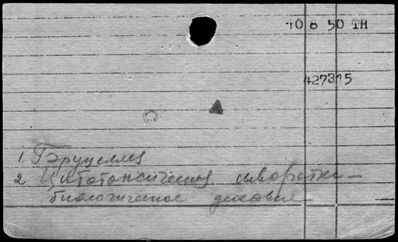 10 8 50 TH
427315
1 Бруцеллез
2 Цитотоксическая сыворотка –
биологическое действие